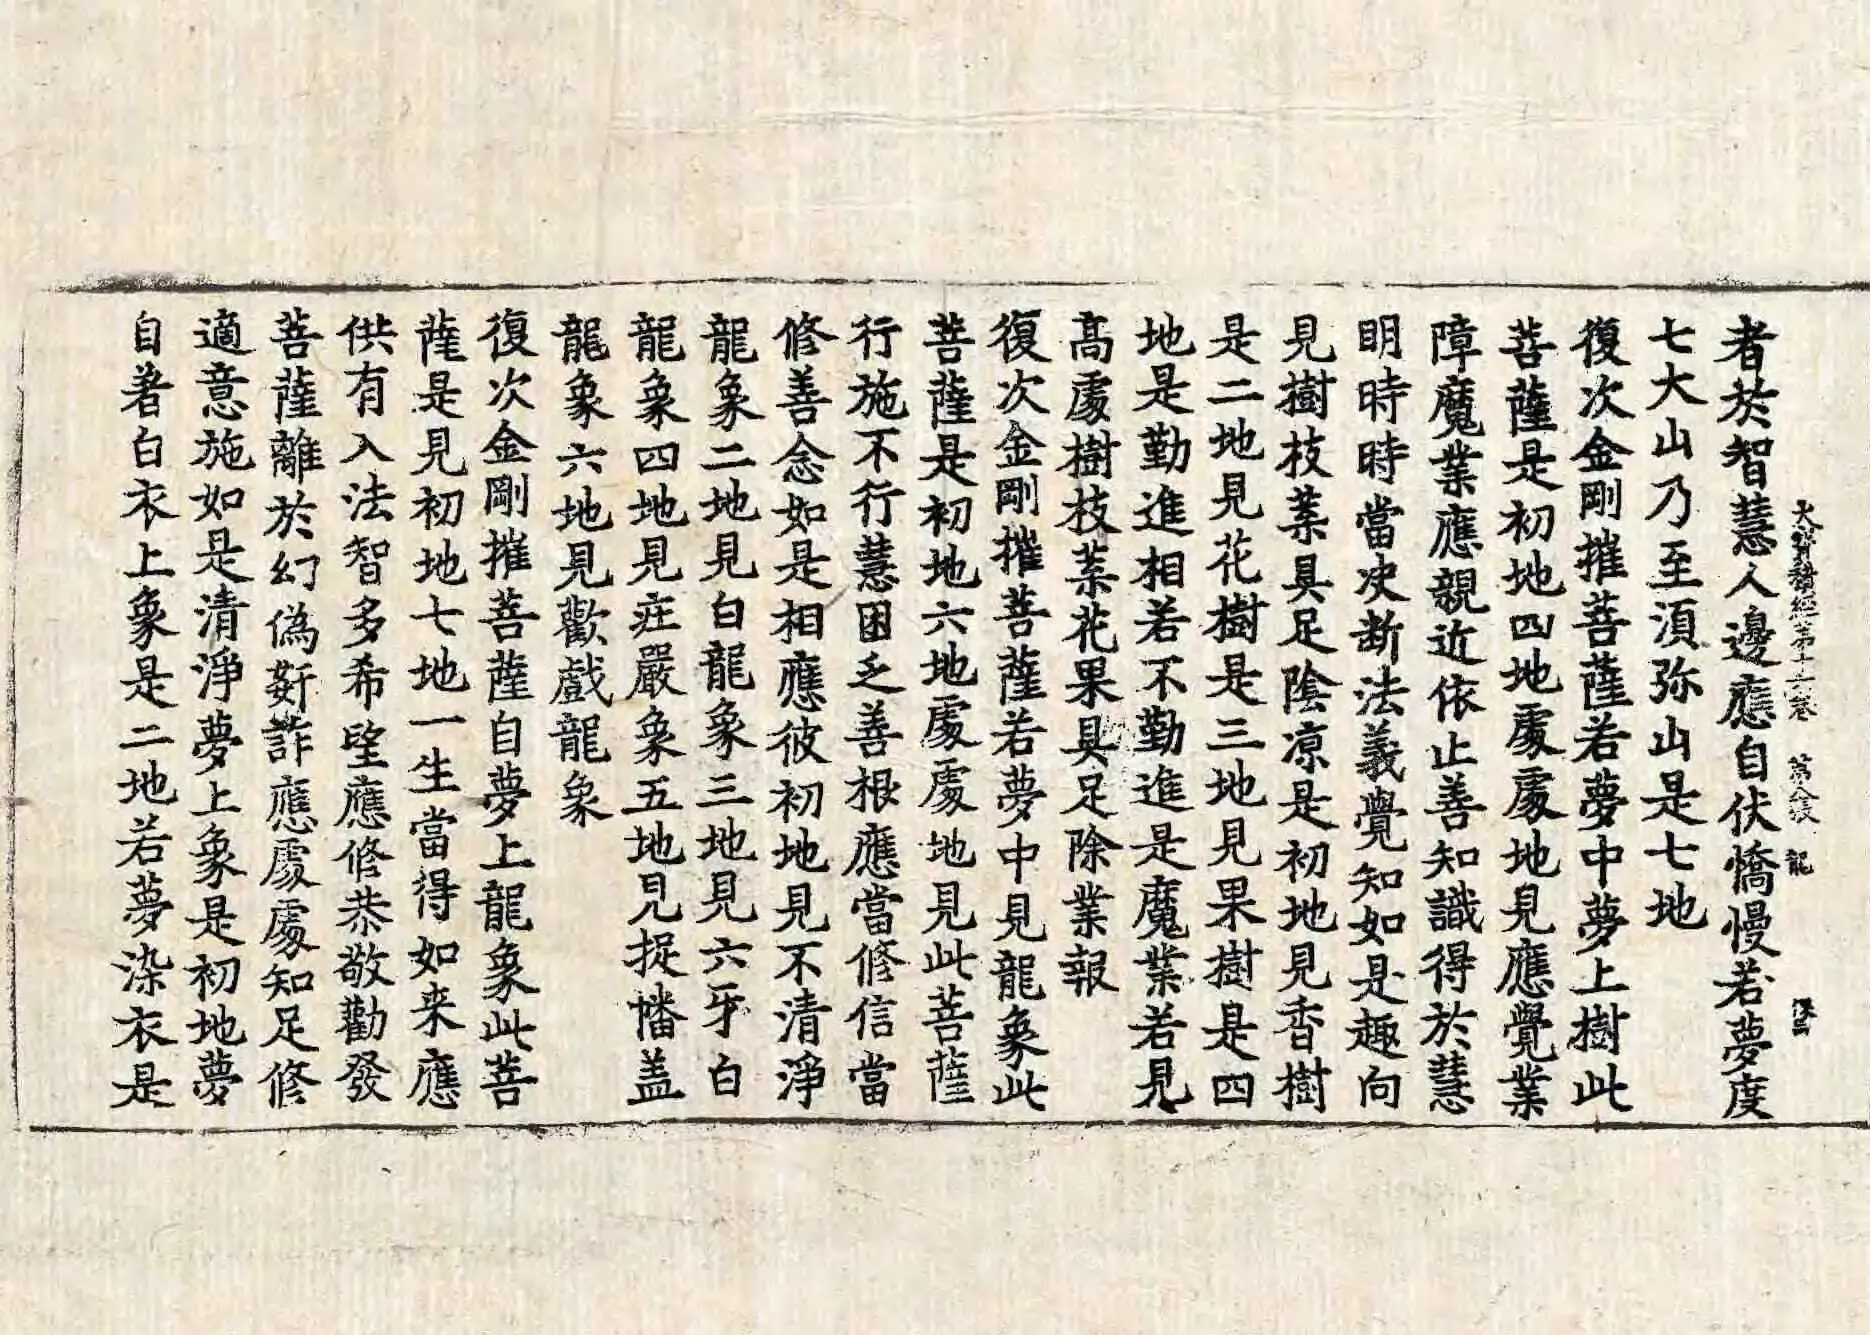 大寶積經第十六卷 第八張 龍
者於智慧人邊應自伏憍慢若夢度
七大山乃至湏弥山是七地
復次金剛摧菩薩若夢中夢上樹此
菩薩是初地四地處處地見應覺業
障魔業應親近依止善知識得於慧
明時時當决断法義覺知如是趣向
見樹枝葉具足陰凉是初地見香樹
是二地見花樹是三地見果樹是四
地是勤進相若不勤進是魔業若見
髙處樹枝葉花果具足除業報
復次金剛摧菩薩若夢中見龍象此
菩薩是初地六地處處地見此菩薩
行施不行慧困乏善根應當修信當
修善念如是相應彼初地見不清淨
龍象二地見白龍象三地見六牙白
龍象四地見庄嚴象五地見捉幡盖
龍象六地見歡戲龍象
復次金剛摧菩薩自夢上龍象此菩
薩是見初地七地一生當得如来應
供有入法智多希望應修恭敬勸發
菩薩離於幻偽姧詐應處處知足修
適意施如是清淨夢上象是初地夢
自著白衣上象是二地若夢染衣是